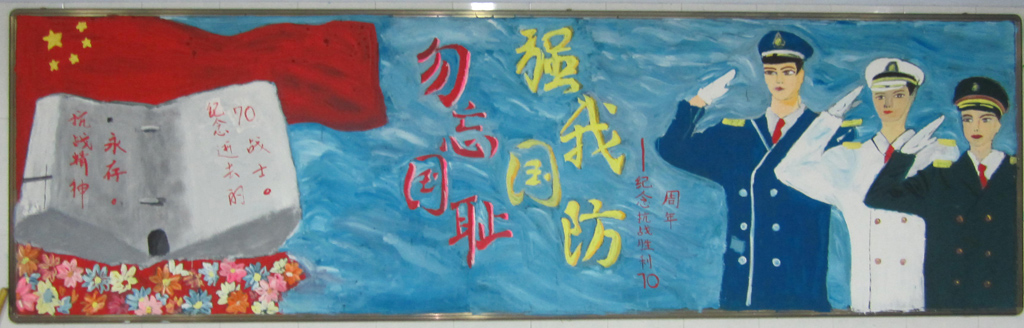 纪念逝去的
70战士。
抗战精神
永存。
勿忘国耻
强我国防
—纪念抗战胜利70
周年